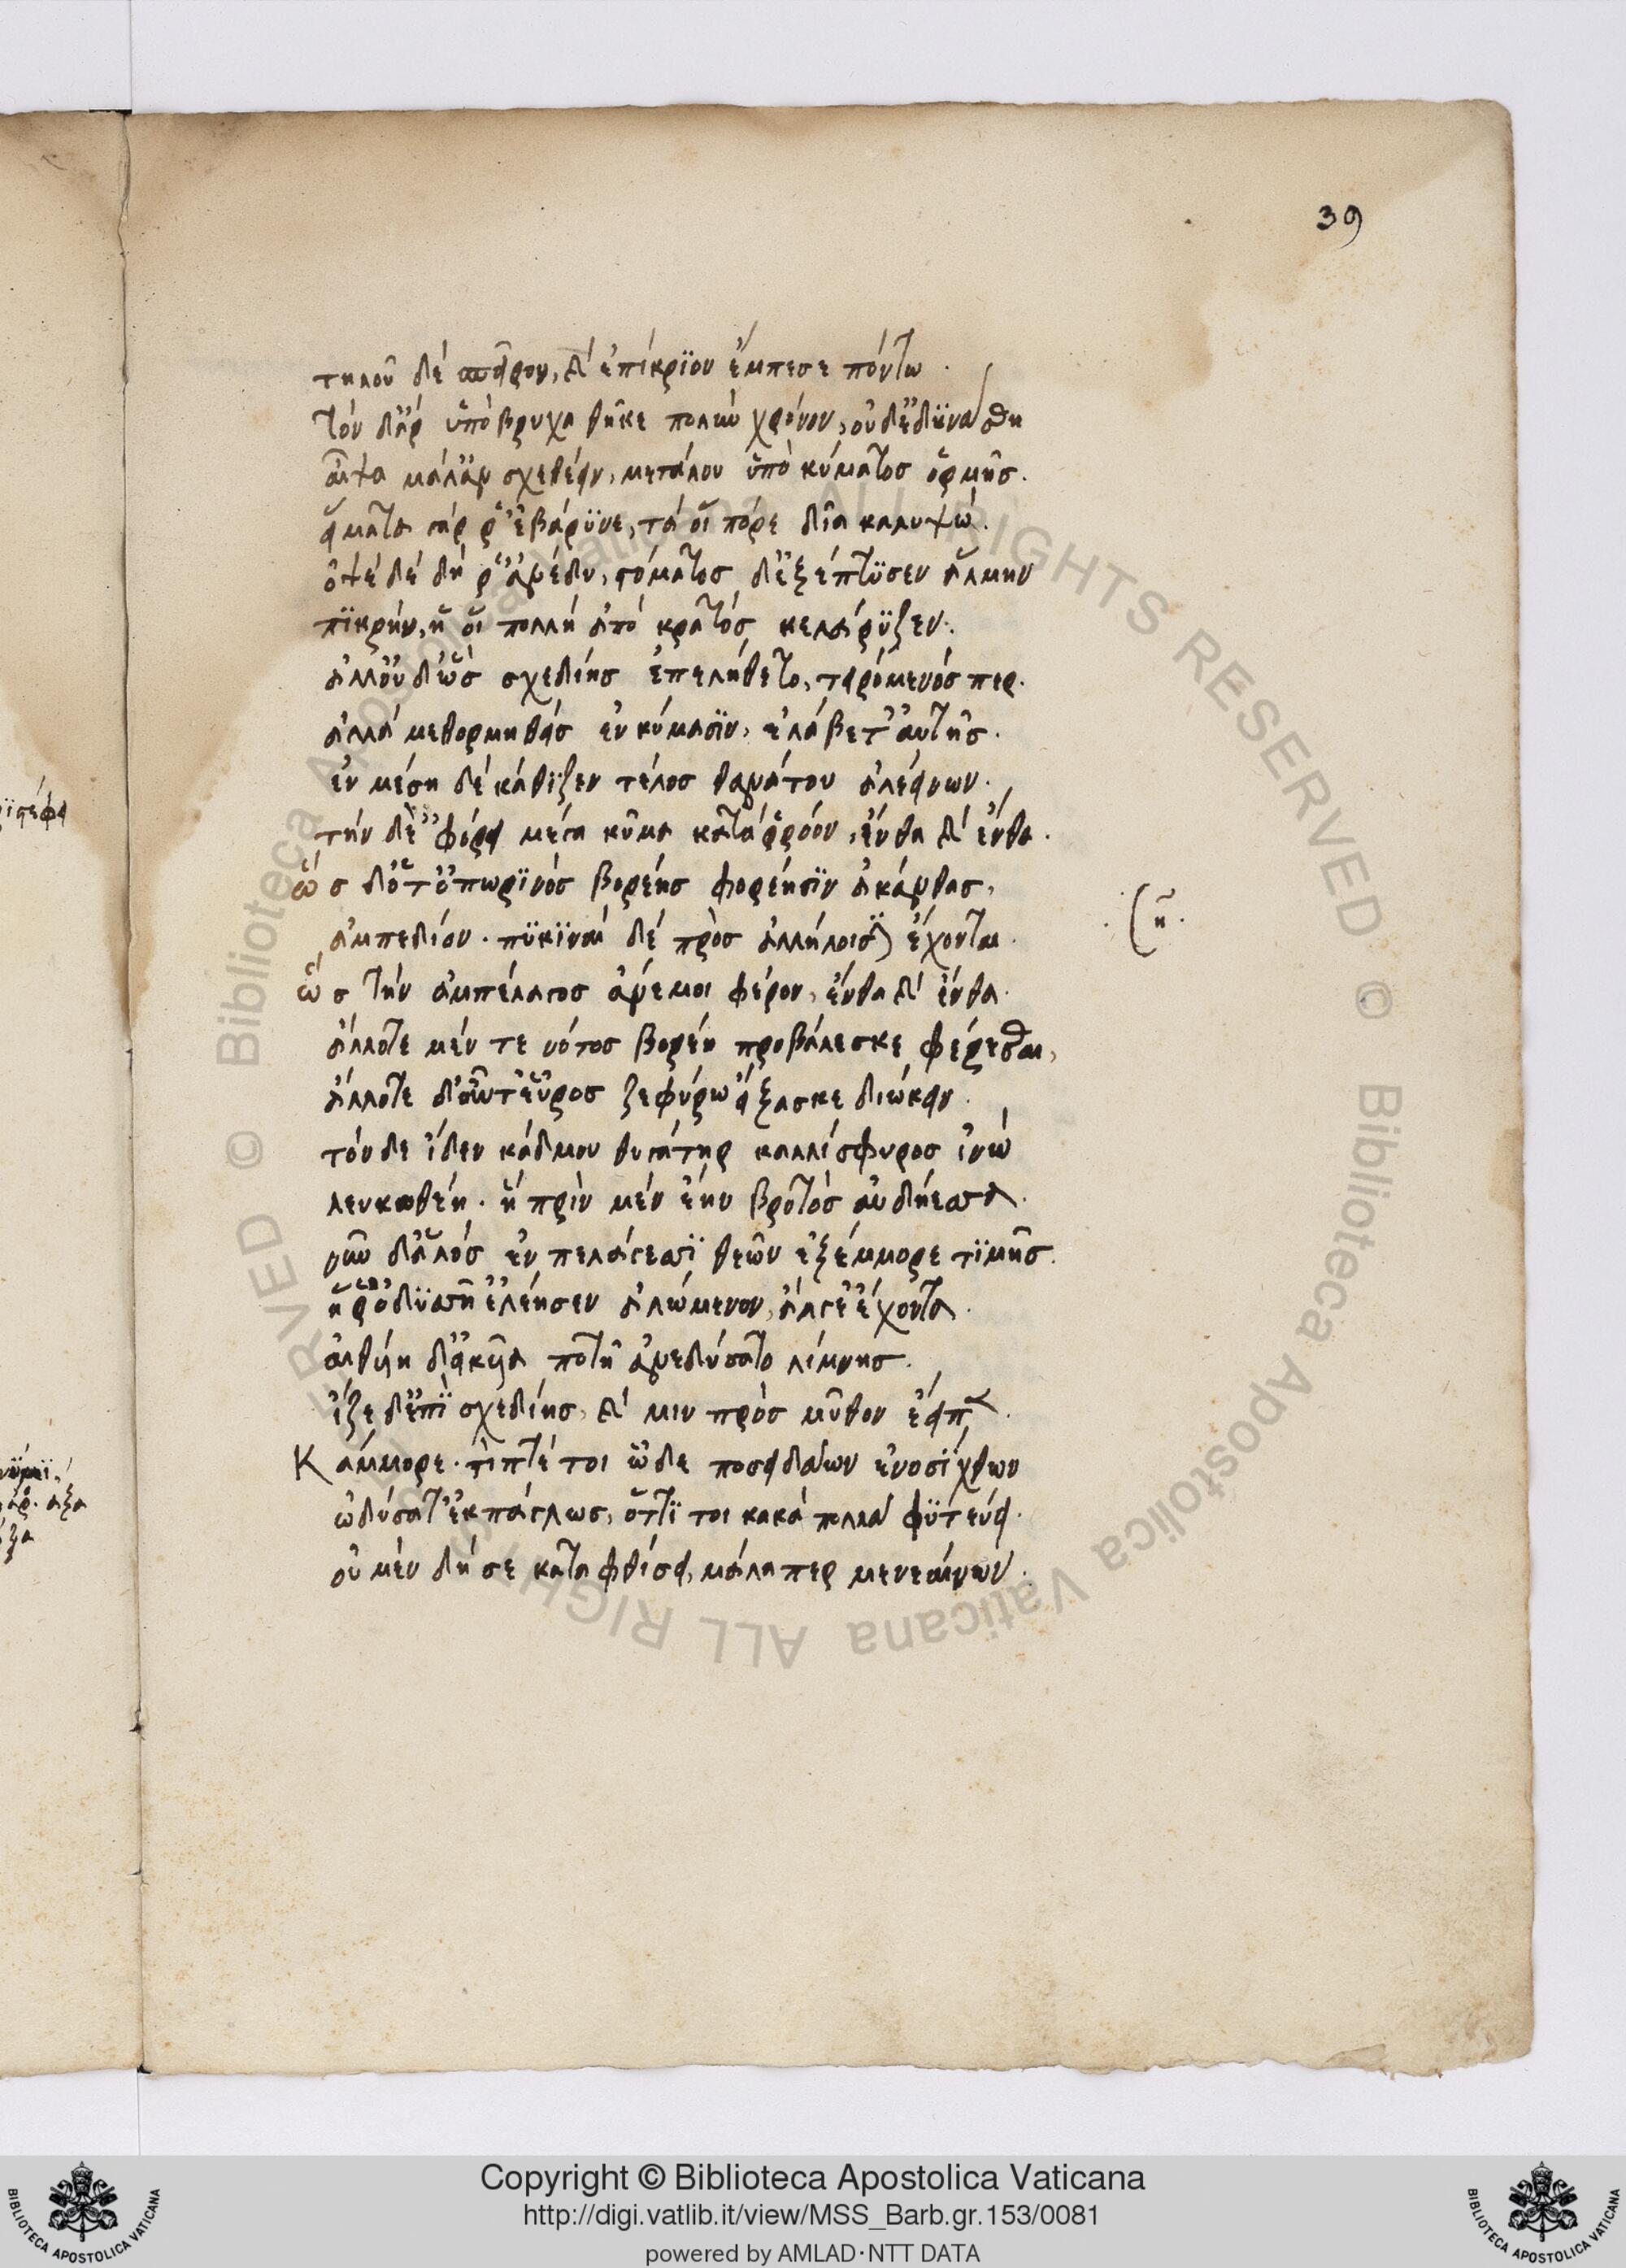 39
τηλοῦ δὲ σπεῖρον, καὶ ἐπίκριον ἔμπεσε πόντω.
τὸν δ' ἄρ ὑπόβρυχα θῆκε πολὺν χρόνον, οὐδ' ἐδυνάσθη
αἶψα μάλ' ἀνσχεθέειν, μεγάλου ὑπὸ κύματος ὁρμῆς.
εἵματα γάρ ῥ' ἐβάρυνε, τά οἱ πόρε δῖα καλυψώ.
ὀψὲ δὲ δή ῥ' ἀνέδυ, στόματος δ' ἐξέπτυσεν ἅλμην
πικρὴν, ἥ οἱ πολλὴ ἀπὸ κρατὸς κελάρυζεν.
ἀλλ' οὐδ' ὣς σχεδίης ἐπελήθετο, τειρόμενός περ.
ἀλλὰ μεθορμηθεὶς ἐν κύμασιν, ἐλάβετ' αὐτῆς.
ἐν μέση δὲ κάθιζεν τέλος θανάτου ἀλεείνων.
τὴν δ' ἐφόρει μέγα κῦμα κατὰ ῥρόον, ἔνθα καὶ ἔνθα.
ὡς δ' ὅτ' ὀπωρινὸς βορέης φορέησιν ἀκάνθας,
ἀμπεδίον. πυκιναὶ δὲ πρὸς ἀλλήλοισιν ἔχονται.
(η.
ὣς τὴν ἀμπέλαγος ἄνεμοι φέρον, ἔνθα καὶ ἔνθα.
ἄλλοτε μέν τε νότος βορέη προβάλεσκε φέρεσθαι,
ἄλλοτε δ' αὖτ' εὖρος ζεφύρω εἴξασκε διώκειν.
τὸν δὲ ἴδεν κάδμου θυγάτηρ καλλίσφυρος ἰνώ
λευκοθέη. ἣ πρὶν μὲν ἔην βροτὸς αὐδήεσσα.
νῦν δ' ἁλὸς ἐν πελάγεσσι θεῶν ἐξέμμορε τιμῆς.
ἥ ῥ' ὀδυσσῆ' ἐλέησεν ἀλώμενον, ἄλγε' ἔχοντα.
αἰθυίη δ' εἰκυῖα ποτῆ ἀνεδύσατο λίμνης.
ἷζε δ' ἐπὶ σχεδίης, καὶ μιν πρὸς μῦθον ἔειπε.
Κάμμορε. τίπτέ τοι ὧδε ποσειδάων ἐνοσίχθων
ὠδύσατ' ἐκπάγλως, ὅττι τοι κακὰ πολλὰ φυτεύει.
οὐ μὲν δή σε καταφθίσει, μάλα περ μενεαίνων.
Copyright © Biblioteca Apostolica Vaticana
http://digi.vatlib.it/view/MSS_Barb.gr.153/0081
powered by AMLAD·NTT DATA
BIBLIOTECA APOSTOLICA VATICANA
BIBLIOTECA APOSTOLICA VATICANA
© Biblioteca Apostolica Vaticana ALL RIGHTS RESERVED © Biblioteca Apostolica Vaticana ALL RIGHTS RESERVED